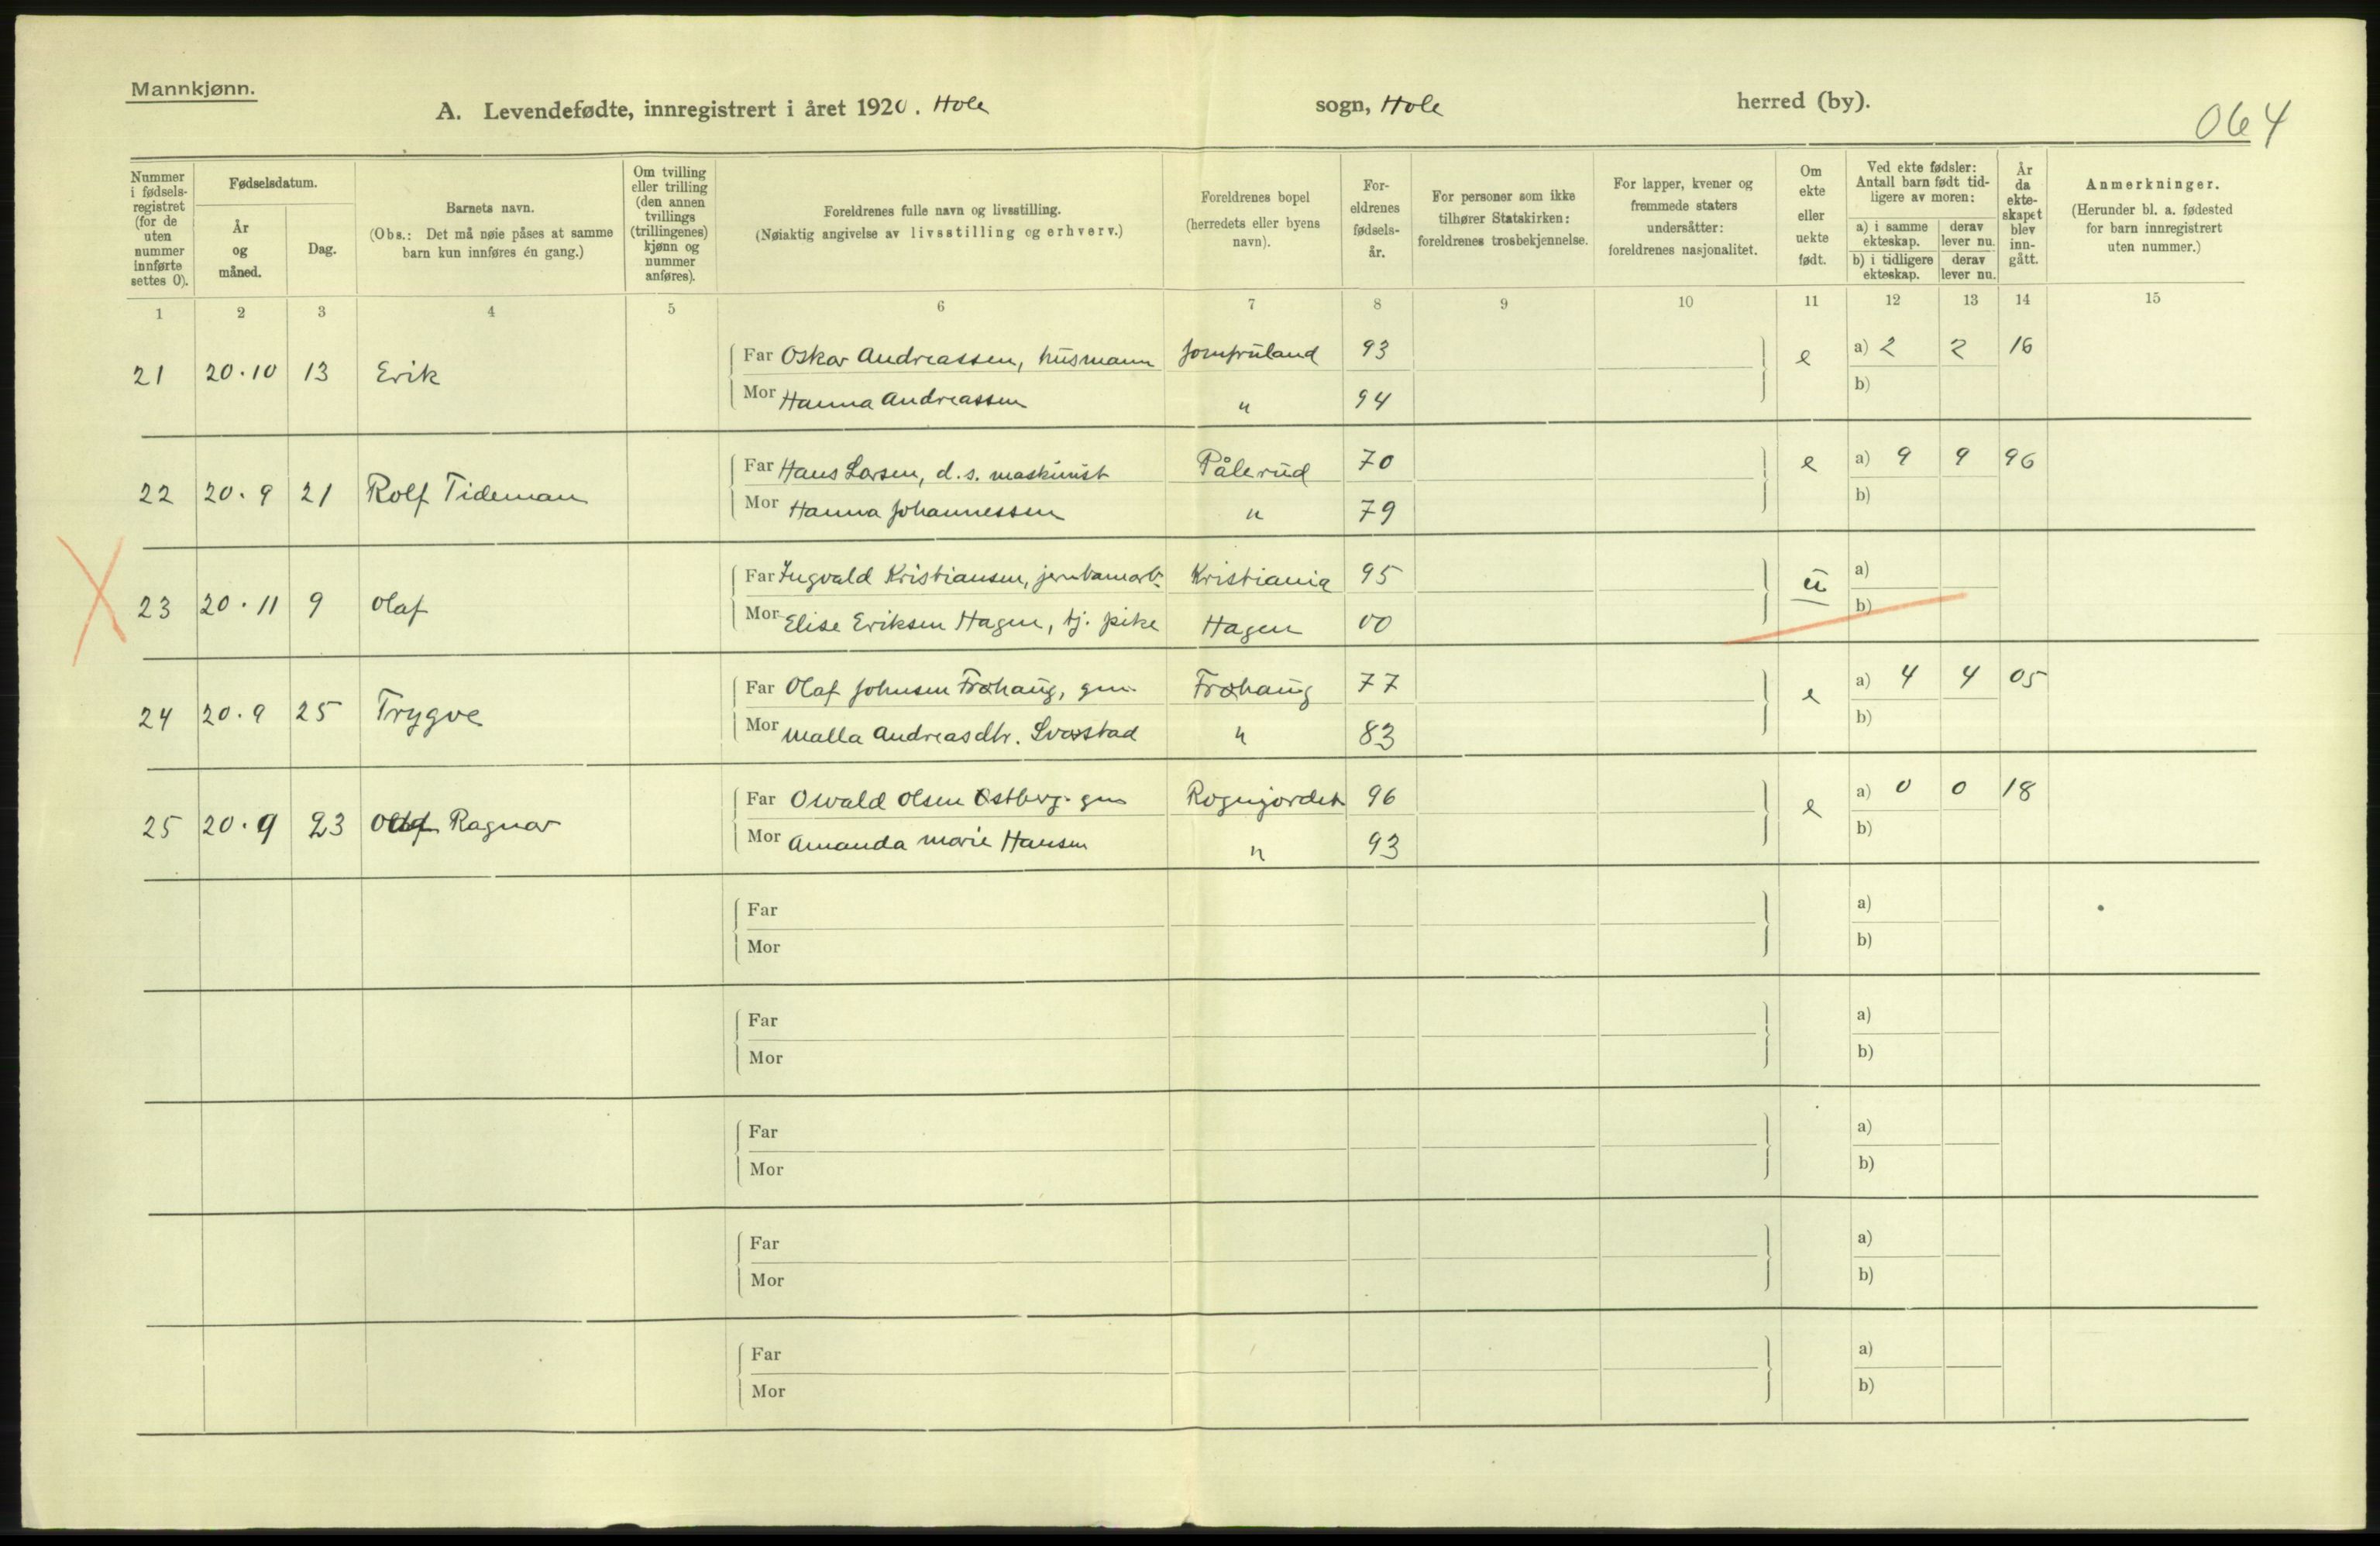 Mannkjønn.
A. Levendefødte, innregistrert i året 1920. Hole sogn, Hole herred (by).
064
Nummer i fødsels- registret (for de uten nummer innførte settes 0).
Fødselsdatum.
År og måned.
Dag.
Barnets navn.
(Obs.: Det må nøie påses at samme barn kun innføres én gang.)
Om tvilling eller trilling (den annen tvillings (trillingenes) kjønn og nummer anføres).
Foreldrenes fulle navn og livsstilling.
(Nøiaktig angivelse av livsstilling og erhverv.)
Foreldrenes bopel (herredets eller byens navn).
For- eldrenes fødsels- år.
For personer som ikke tilhører Statskirken: foreldrenes trosbekjennelse.
For lapper, kvener og fremmede staters undersåtter: foreldrenes nasjonalitet.
Om ekte eller uekte født.
Ved ekte fødsler: Antall barn født tid- ligere av moren:
a) i samme ekteskap. derav lever nu.
b) i tidligere ekteskap. derav lever nu.
År da ekte- skapet blev inn- gått.
Anmerkninger.
(Herunder bl. a. fødested for barn innregistrert uten nummer.)
1 2 3 4 5 6 7 8 9 10 11 12 13 14 15
21 20.10 13 Erik Far Oskar Andreassen, husmann Jomfruland 93 e a) 2 2 16
Mor Hanna Andreassen " 94 b)
22 20.9 21 Rolf Tideman Far Hans Larsen, d.s. maskinist Pålerud 70 e a) 9 9 96
Mor Hanna Johannessen " 79 b)
23 20.11 9 Olaf Far Ingvald Kristiansen, jernbanearb. Kristiania 95 u a)
Mor Elise Eriksen Hagen, tj. pike Hagen 00 b)
24 20.9 25 Trygve Far Olaf Johnsen Frøhaug, gm. Frøhaug 77 e a) 4 4 05
Mor Malla Andreasdtr. Svarstad " 83 b)
25 20.9 23 Olaf Ragnar Far Osvald Olsen Østberg. gm Rognjordet 96 e a) 0 0 18
Mor Amanda Marie Hansen " 93 b)
Far a)
Mor b)
Far a)
Mor b)
Far a)
Mor b)
Far a)
Mor b)
Far a)
Mor b)